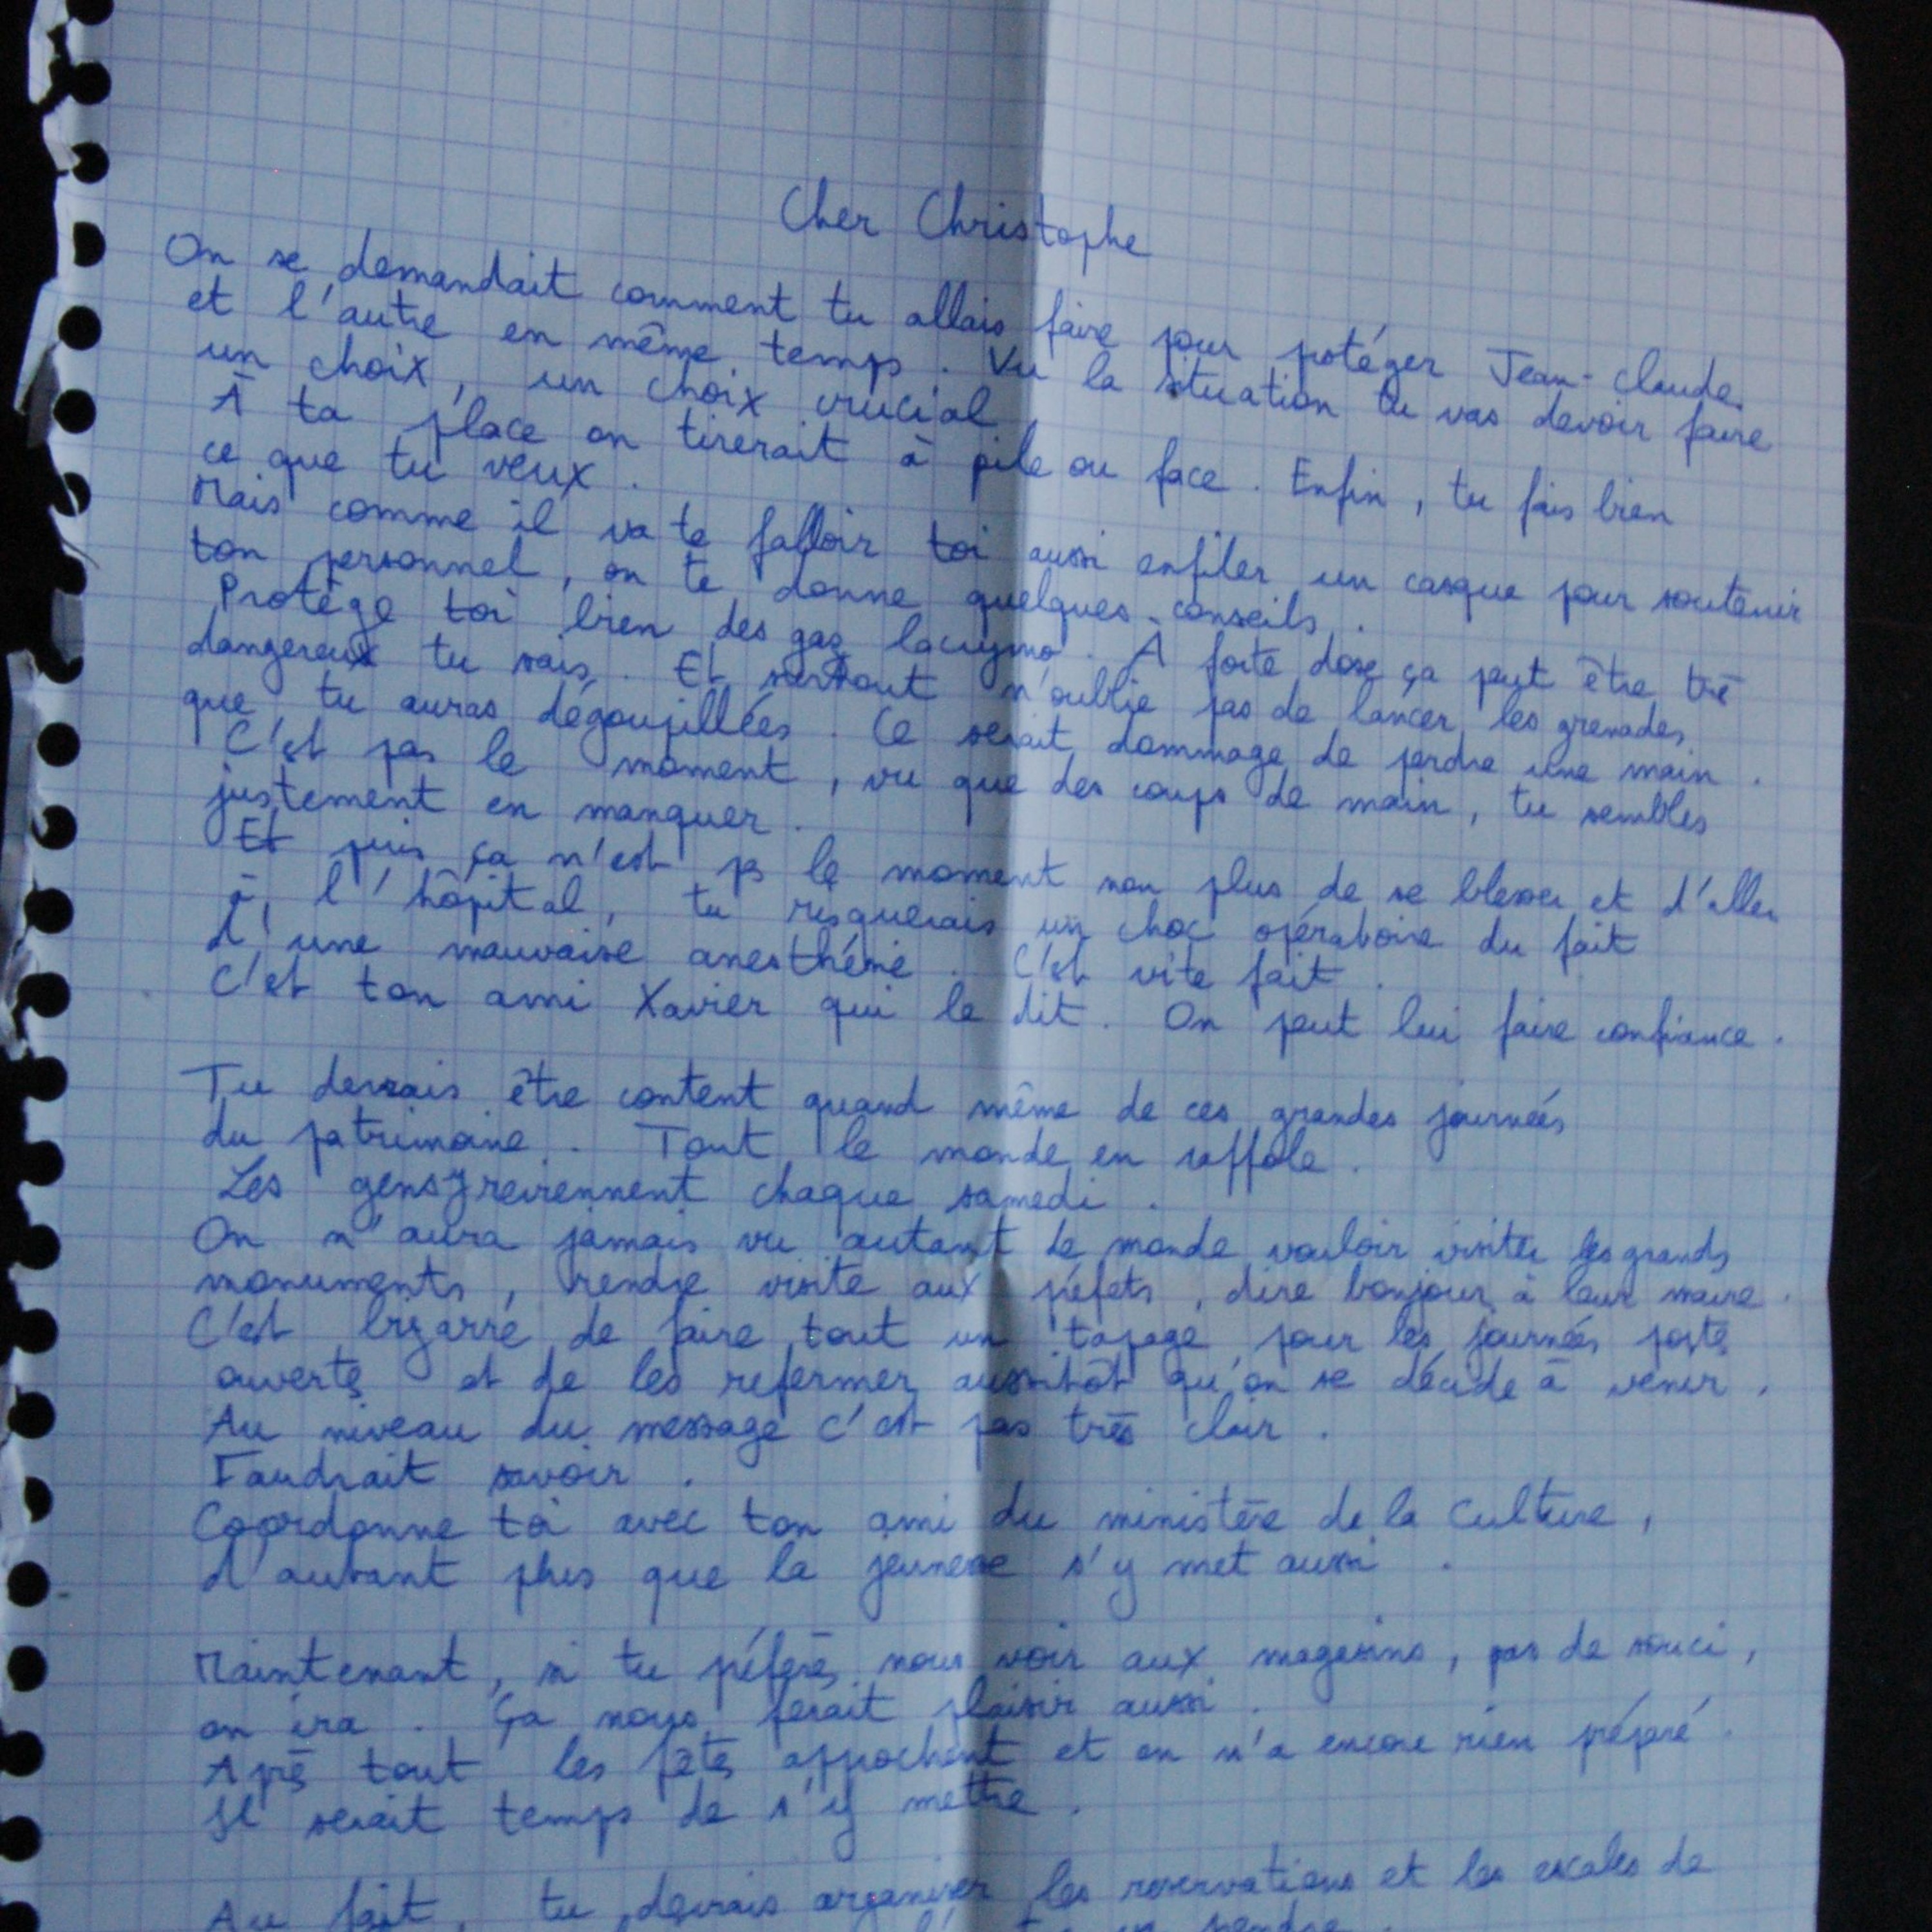 Cher Christophe
On se demandait comment tu allais faire pour protéger Jean-Claude
et l'autre en même temps. Vu la situation tu vas devoir faire
un choix, un choix crucial
À ta place on tirerait à pile ou face. Enfin, tu fais bien
ce que tu veux.
Mais comme il va te falloir toi aussi enfiler un casque pour soutenir
ton personnel, on te donne quelques conseils.
Protège toi bien des gaz lacrymo. À forte dose ça peut être très
dangereux tu sais. Et surtout n'oublie pas de lancer les grenades
que tu auras dégoupillées. Ce serait dommage de perdre une main.
C'est pas le moment, vu que des coups de main, tu sembles
justement en manquer.
Et puis ça n'est ps le moment non plus de se blesser et d'aller
à l'hôpital, tu risquerais un choc opératoire du fait
d'une mauvaise anesthésie. C'est vite fait.
C'est ton ami Xavier qui le dit. On peut lui faire confiance.
Tu devrais être content quand même de ces grandes journées
du patrimoine. Tout le monde en raffole.
Les gens y reviennent chaque samedi.
On n'aura jamais vu autant de monde vouloir visiter les grands
monuments, rendre visite aux préfets, dire bonjour à leur maire.
C'est bizarre de faire tout un tapage pour les journées portes
ouvertes et de les refermer aussitôt qu'on se décide à venir.
Au niveau du message c'est pas très clair.
Faudrait savoir.
Coordonne toi avec ton ami du ministère de la Culture,
d'autant plus que la jeunesse s'y met aussi.
Maintenant, si tu préfères nous voir aux magasins, pas de souci,
on ira. Ça nous ferait plaisir aussi.
Après tout les fêtes approchent et on n'a encore rien préparé.
Il serait temps de s'y mettre.
Au fait, tu devrais organiser les reservations et les escales de